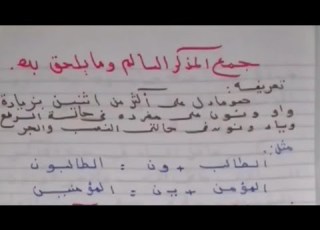 جمع المذكر السالم وما يلحق به.
تعريفه:
هو ما دل على أكثر من اثنين بزيادة
واو ونون على مفرده في حالة الرفع
وياء ونون في حالتي النصب والجر
مثل:
الطالب + ون = الطالبون
المؤمن + ين = المؤمنين